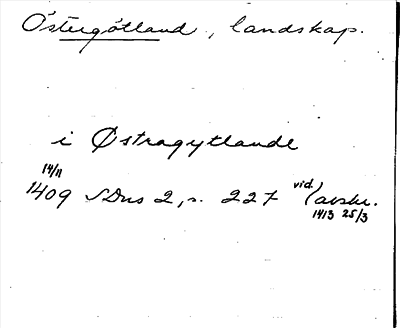 Östergötland, landskap.
i Østragytlande
14/11
1409 SDns 2, s. 227 vid. avskr.
1413 25/3